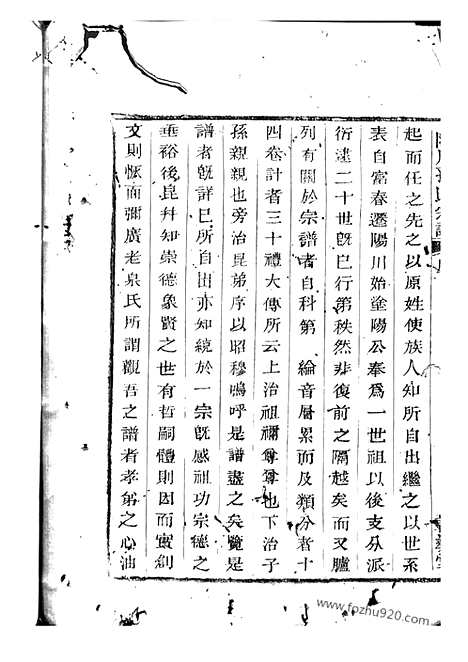 起而任之先之以原姓使族人知所自出繼之以世系
表自富春遷陽川始塗陽公奉爲一世祖以後支分派
衍逮二十世旣已行第秩然非復前之隔越矣而又臚
列有關於宗譜者自科第 綸音層累而及類分者十
四卷計者三十禮大傳所云上治祖禰尊尊也下治子
孫親親也旁治昆弟序以昭穆嗚呼是譜盡之矣覽是
譜者旣詳已所自出亦知統於一宗旣感祖功宗德之
垂裕後昆幷知崇德象賢之世有哲嗣體則因而實創
文則恢而彌廣老泉氏所謂觀吾之譜者孝弟之心油
www.fozhu920.com